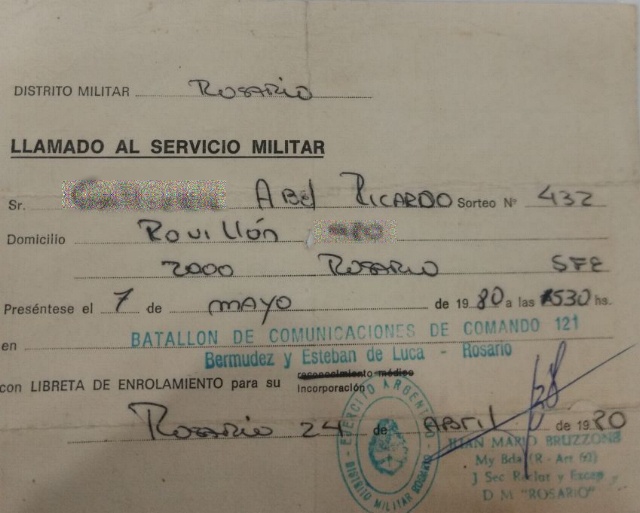 DISTRITO MILITAR Rosario
LLAMADO AL SERVICIO MILITAR
Sr. Abel RICARDO Sorteo Nº 432
Domicilio Rouillón
2000 Rosario SFE
Preséntese el 7 de mayo de 1980 a las 1530 hs.
en BATALLON DE COMUNICACIONES DE COMANDO 121
Bermudez y Esteban de Luca - Rosario
reconocimiento médico
con LIBRETA DE ENROLAMIENTO para su incorporación
Rosario 24 de ABRIL de 1980
EJERCITO ARGENTINO
DISTRITO MILITAR ROSARIO
JUAN MARIO BRUZZONE
My Bda (R - Art 62)
J Sec Reclut y Excep
D M "ROSARIO"